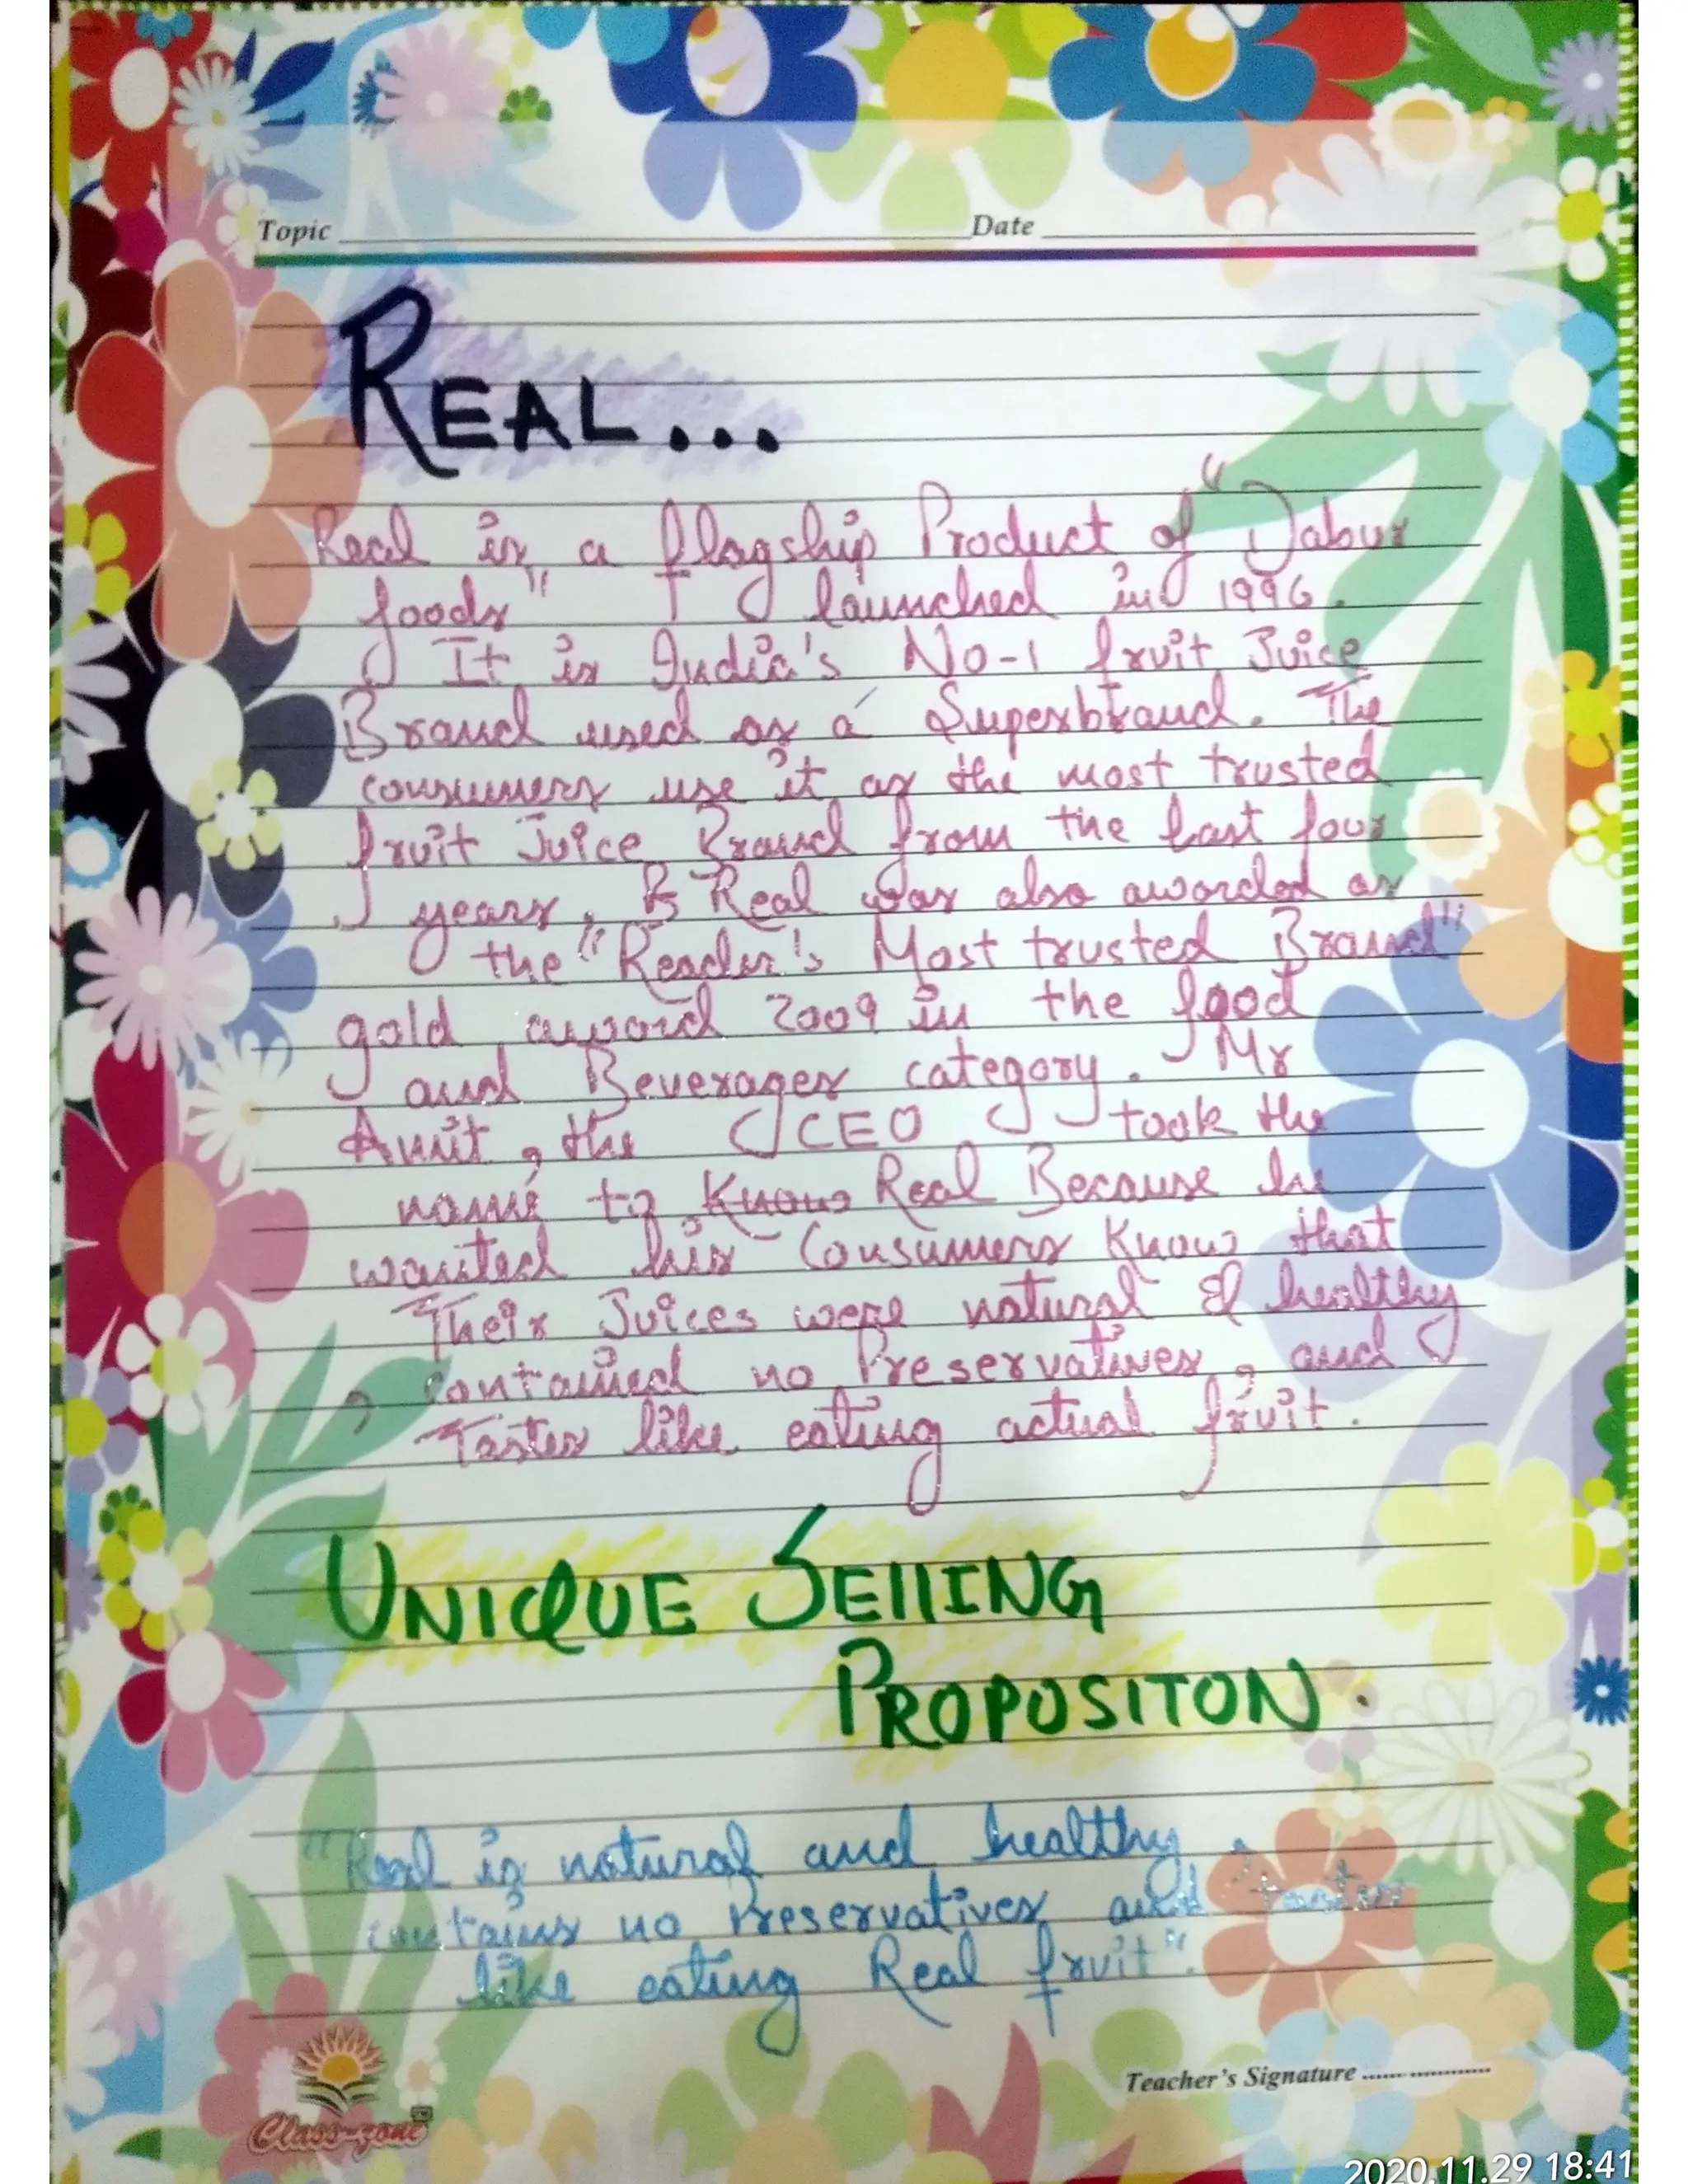 Topic Date
REAL...
Real is a flagship Product of "Dabur
foods" launched in 1996.
It is India's No-1 fruit Juice
Brand used as a Superbrand. The
consumers use it as the most trusted
fruit Juice Brand from the last four
years. Real was also awarded as
the "Reader's Most trusted Brand"
gold award 2009 in the food
and Beverages category. Mr
Amit, the CEO took the
name to Know Real Because he
wanted his Consumers Know that
Their Juices were natural & healthy
, contained no Preservatives, and
Tastes like eating actual fruit.
UNIQUE SEllING
PROPOSITON.
"Real is natural and healthy
contains no Preservatives and tastes
like eating Real fruit".
Teacher's Signature ....................
Class-zone
2020.11.29 18:41